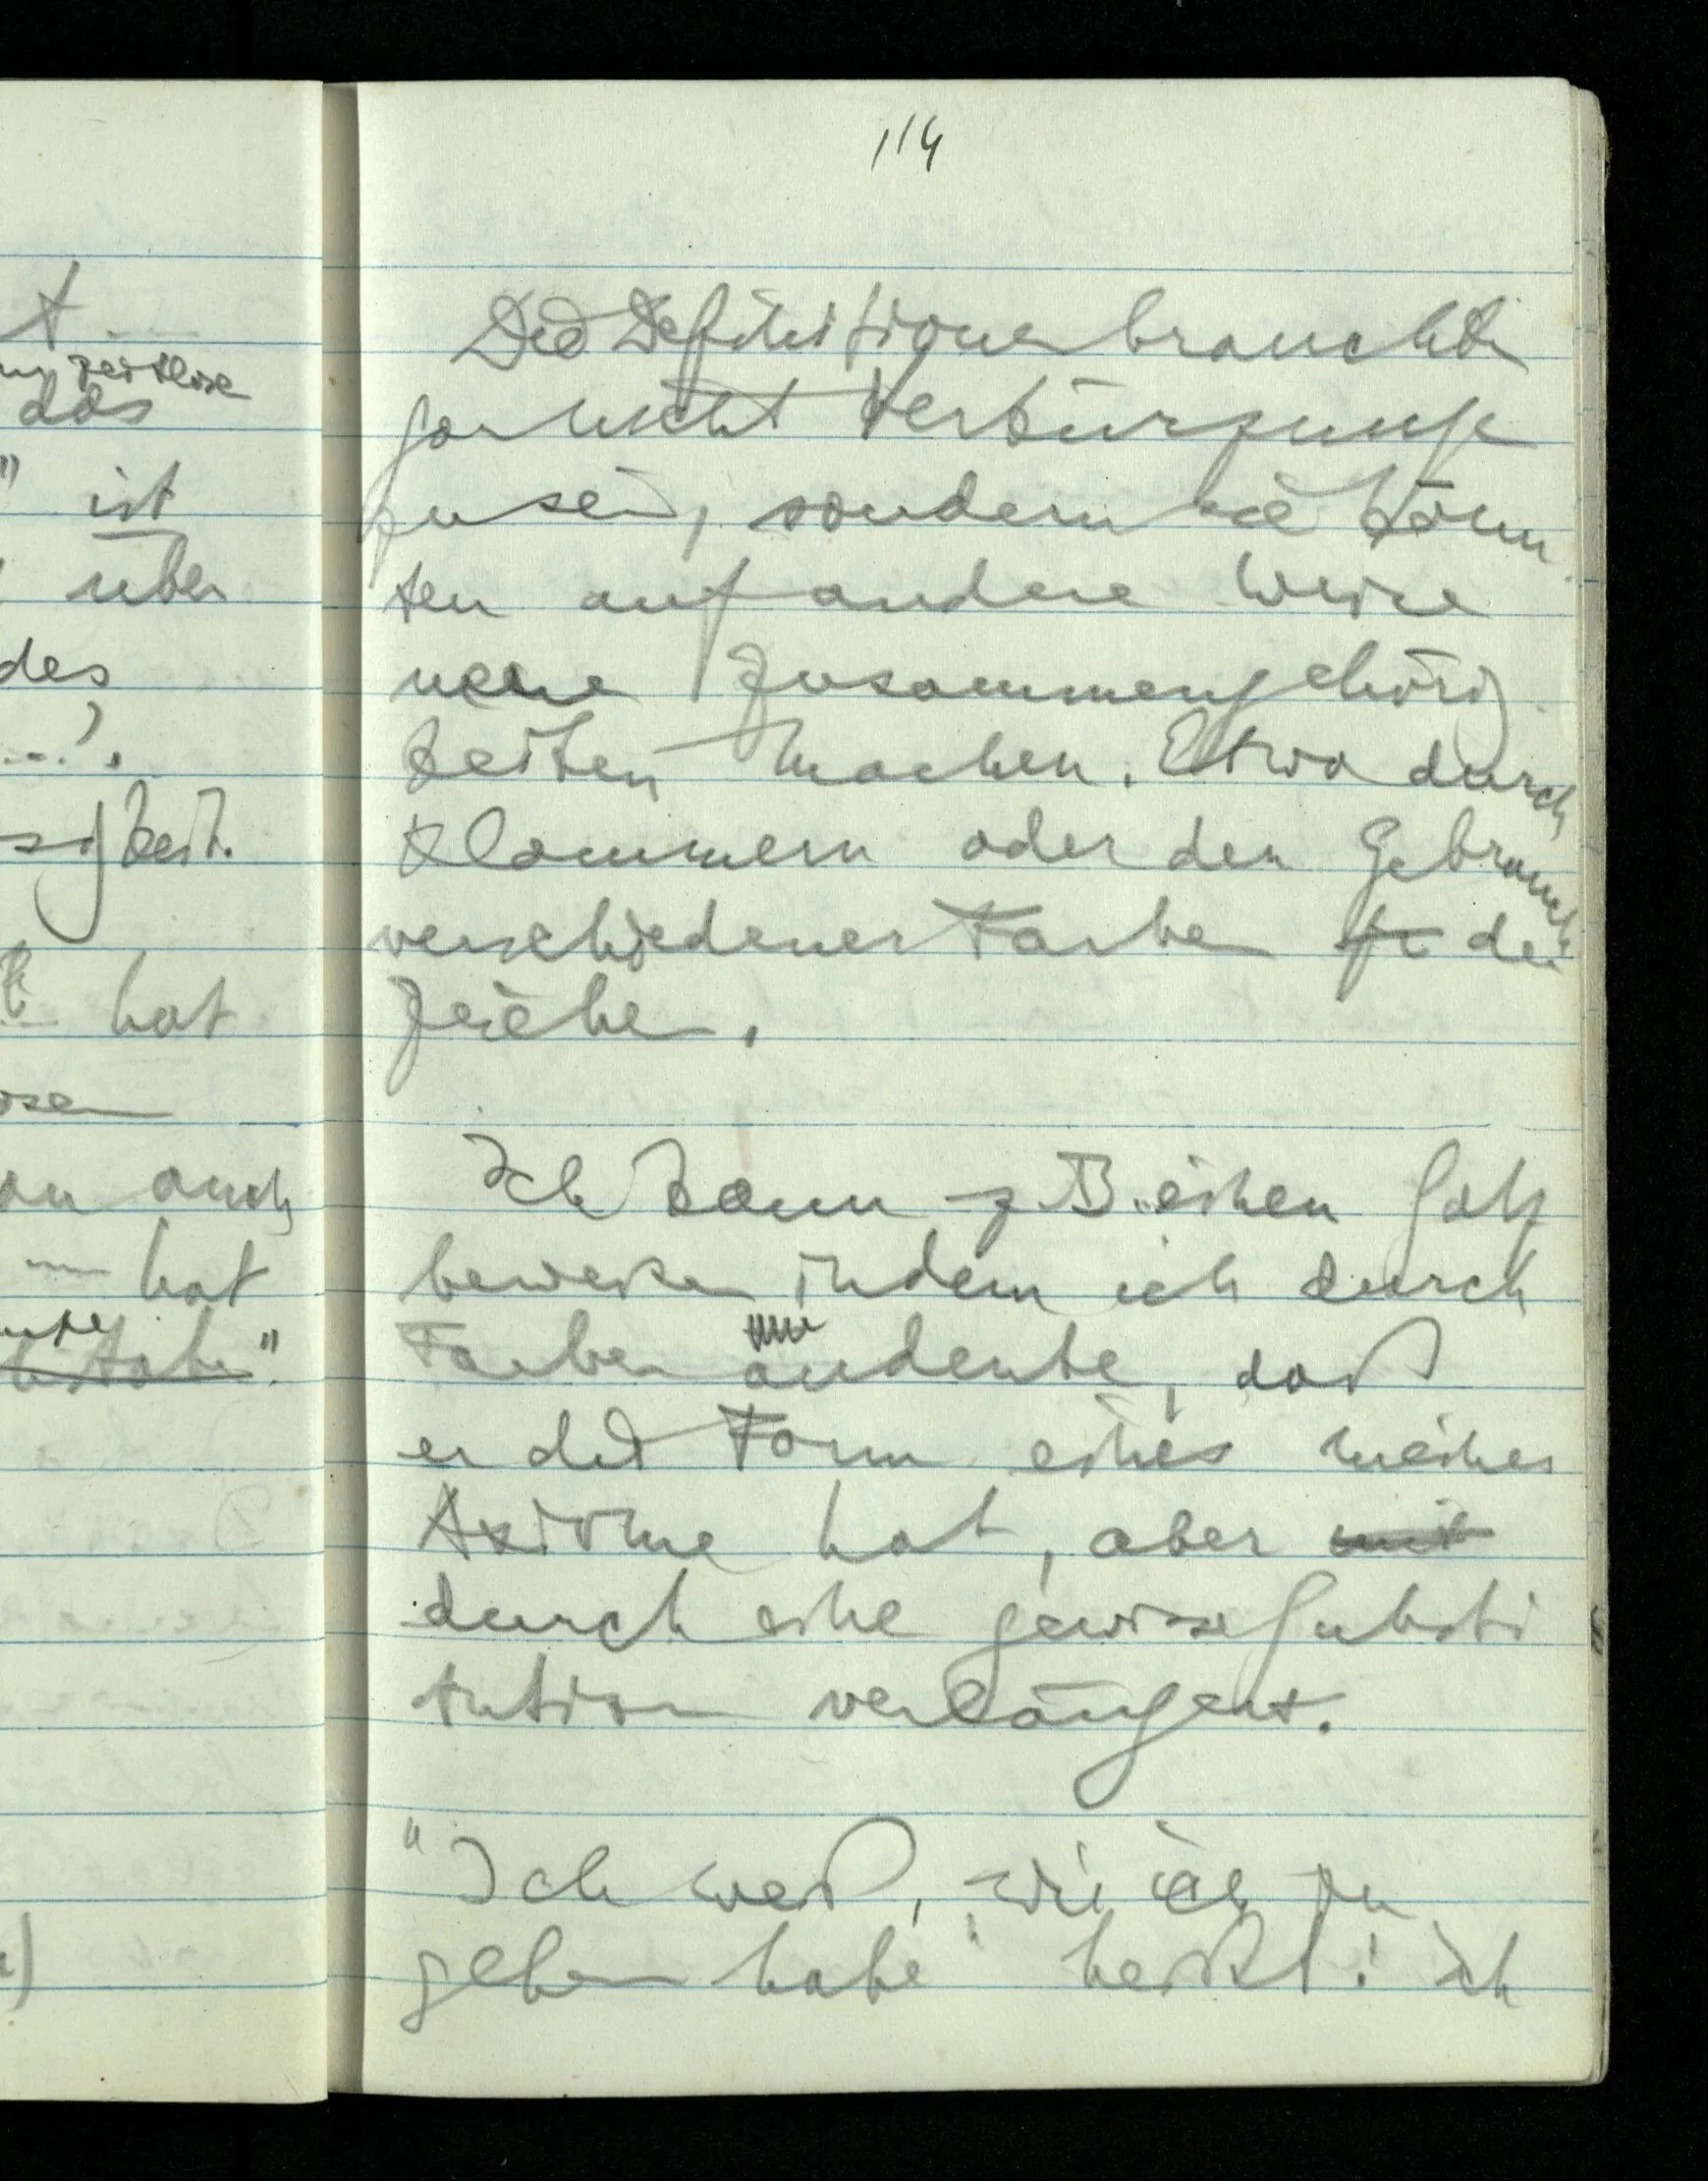 t
zeitlose
das
" ist
über
des
...'.
sigkeit.
hat
osen
an auch
hat
114
Die Definitionen brauchten
gar nicht Verkürzungen
zu sein, sondern sie könn
ten auf andere Weise
neue Zusammengehörig
keiten machen. Etwa durch
Klammern oder den Gebrauch
verschiedener Farben der
Zeichen.
Ich kann z.B. einen Satz
beweisen indem ich durch
Farben andeute, daß
er die Form eines meiner
Axiome hat, aber mit
durch eine gewisse Substi
tution verlängert.
"Ich weiß, wie ich zu
gehen habe" heißt: ich